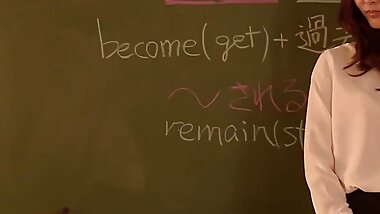 become(get)+過
～される
remain(st